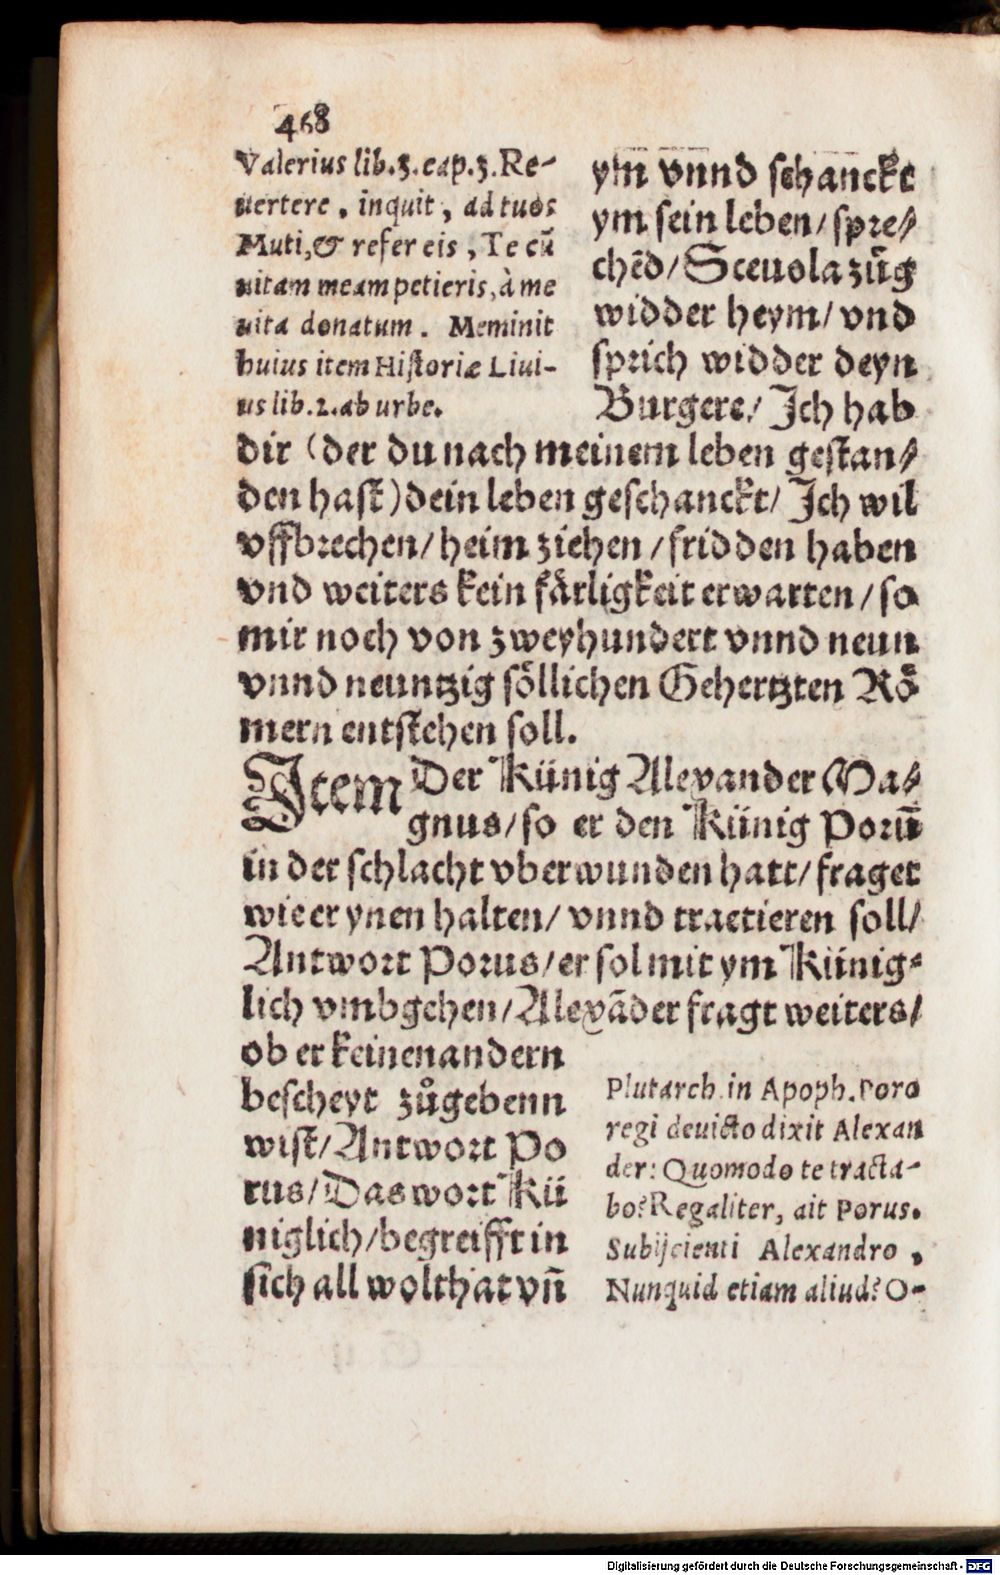 468
Valerius lib.3. cap.3. Re-
uertere, inquit, ad tuos
Muti, & refer eis, Te cũ
uitam meam petieris, à me
uita donatum. Meminit
huius item Historiæ Liui-
us lib.2. ab urbe.
ym vnnd schanckt
ym sein leben/ spre⸗
chẽd/ Sceuola züg
widder heym/ vnd
sprich widder deyn
Burgere/ Ich hab
dir (der du nach meinem leben gestan⸗
den hast) dein leben geschanckt/ Ich wil
vffbrechen/ heim ziehen/ fridden haben
vnd weiters kein fårligkeit erwarten/ so
mir noch von zweyhundert vnnd neun
vnnd neuntzig söllichen Gehertzten Rö
mern entstehen soll.
Item Der Künig Alexander Ma⸗
gnus/ so er den Künig Porũ
in der schlacht vberwunden hatt/ fraget
wie er ynen halten/ vnnd tractieren soll/
Antwort Porus/ er sol mit ym Künig⸗
lich vmbgehen/ Alexãder fragt weiters/
ob er keinen andern
bescheyt zůgebenn
wist/ Antwort Po
rus/ Das wort Kü
niglich/ begreifft in
sich all wolthat vñ
Plutarch in Apoph. Poro
regi deuicto dixit Alexan
der: Quomodo te tracta-
bo? Regaliter, ait Porus.
Subijcienti Alexandro,
Nunquid etiam aliud? O-
Digitalisierung gefördert durch die Deutsche Forschungsgemeinschaft - DFG